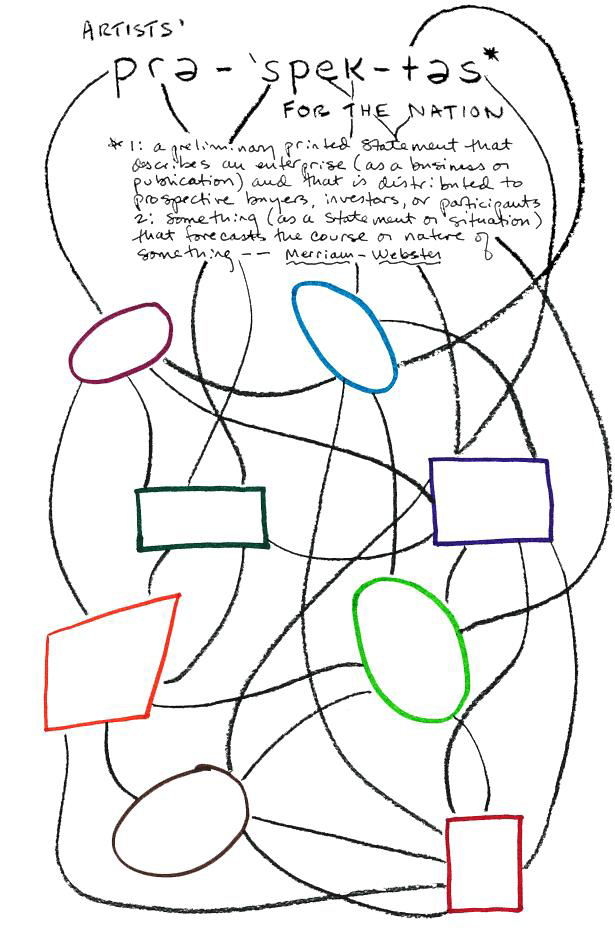 ARTISTS'
prə-ˈspek-təs*
FOR THE NATION
* 1: a preliminary printed statement that
describes an enterprise (as a business or
publication) and that is distributed to
prospective buyers, investors, or participants
2: something (as a statement or situation)
that forecasts the course or nature of
something -- Merriam-Webster